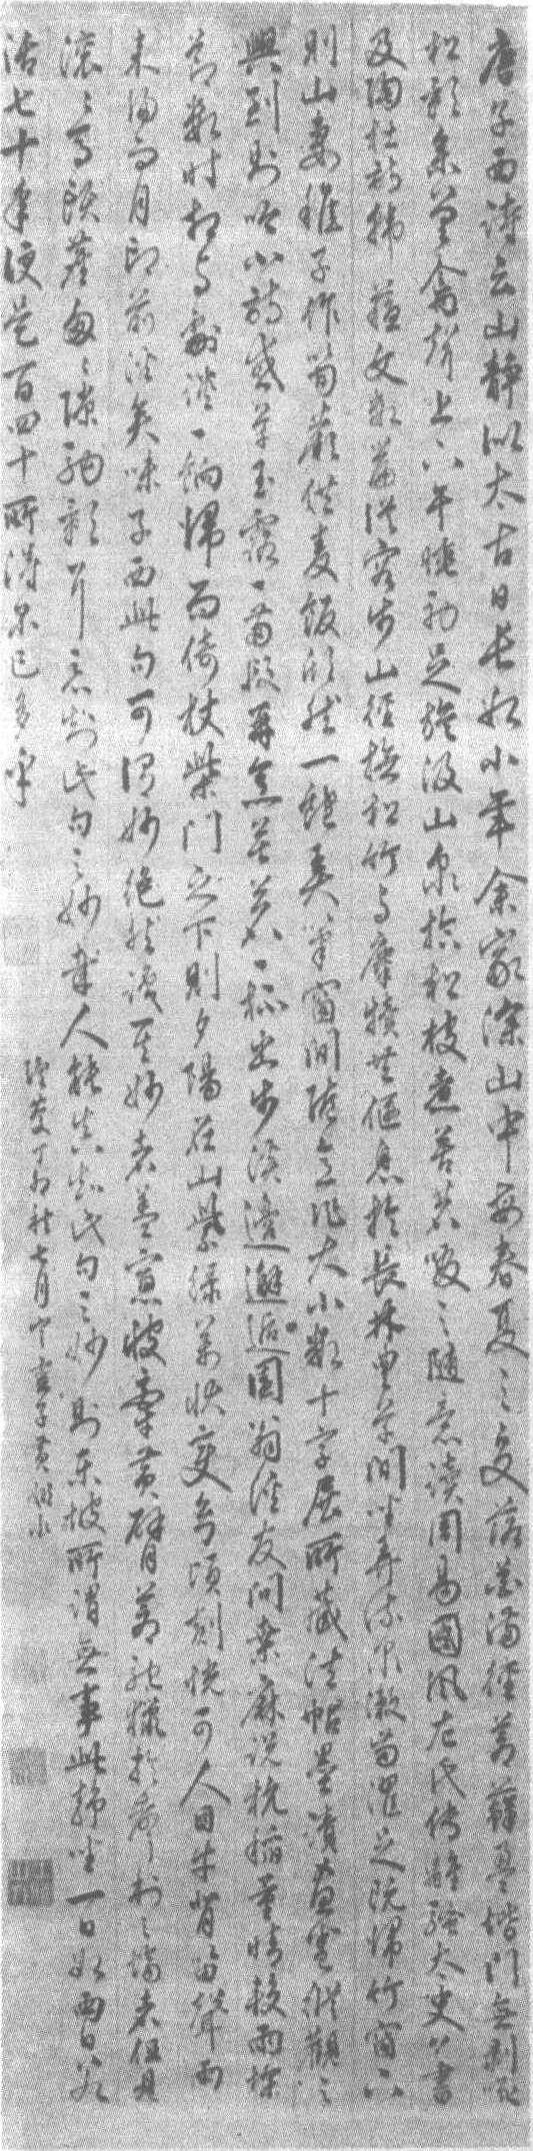 唐子西詩云山靜似太古日長如小年余家深山中每春夏之交落花滿徑蒼蘚盈堦門無剝啄
松影參差禽聲上下午睡初足旋汲山泉拾松枝煮苦茗啜之隨意讀周易國風左氏傳離騷太史公書
及陶杜詩韓蘇文數篇從容步山徑撫松竹與麛犢共偃息於長林豐草間坐弄流泉漱齒濯足既歸竹窗下
則山妻稚子作筍蕨供麥飯欣然一飽弄筆窗間隨意作大小數十字展所藏法帖墨蹟畫卷縱觀之
興到則吟小詩或草玉露一兩段再烹苦茗一杯出步溪邊邂逅園翁溪友問桑麻說秔稻量晴較雨探
節數時相與劇談一餉歸而倚杖柴門之下則夕陽在山紫綠萬狀變幻頃刻恍可人目牛背笛聲兩
來歸而月印前溪矣味子西此句可謂妙絕然識其妙者蓋寡彼牽黃臂蒼馳獵於聲利之場者但見
滾滾馬頭塵匆匆隙駒影耳烏知此句之妙哉人能真知此句之妙則東坡所謂無事此靜坐一日如兩日若
活七十年便是百四十所得不已多乎
隆慶丁卯秋七月黃姬水